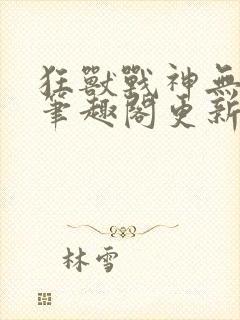 狂獸戰神無
筆趣閣更新
林雪